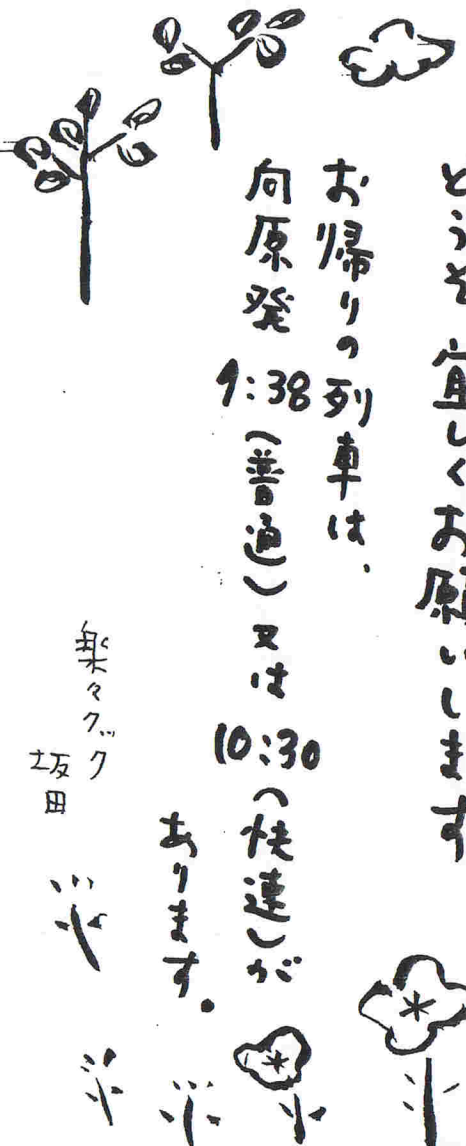 どうぞ 宜しくお願いします
お帰りの列車は、
向原発 9:38(普通)又は 10:30(快速)が
あります。
楽々クック
坂田